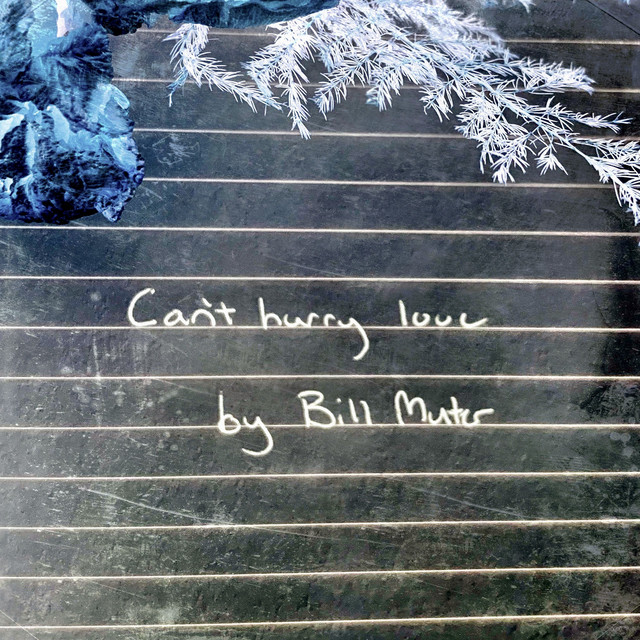 Can't hurry love
by Bill Muter